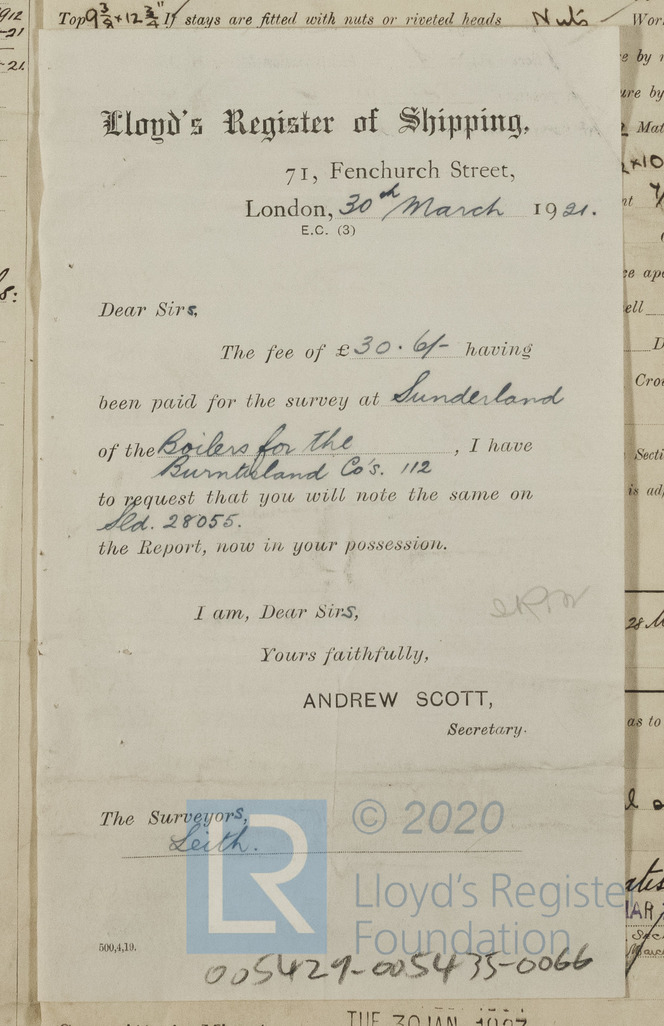 Top 9 3/8 x 12 3/4" If stays are fitted with nuts or riveted heads Nuts
Lloyd's Register of Shipping,
71, Fenchurch Street,
London, 30th March 1921.
E.C. (3)
Dear Sirs,
The fee of £30. 6/- having
been paid for the survey at Sunderland
of the Boilers for the , I have
Burntisland Co's. 112
to request that you will note the same on
Sld. 28055.
the Report, now in your possession.
I am, Dear Sirs,
Yours faithfully,
ANDREW SCOTT,
Secretary.
The Surveyors,
Leith.
LR
© 2020
Lloyd's Registe
Foundation
500,4,19.
005429-005435-0066
TUE 30 JAN